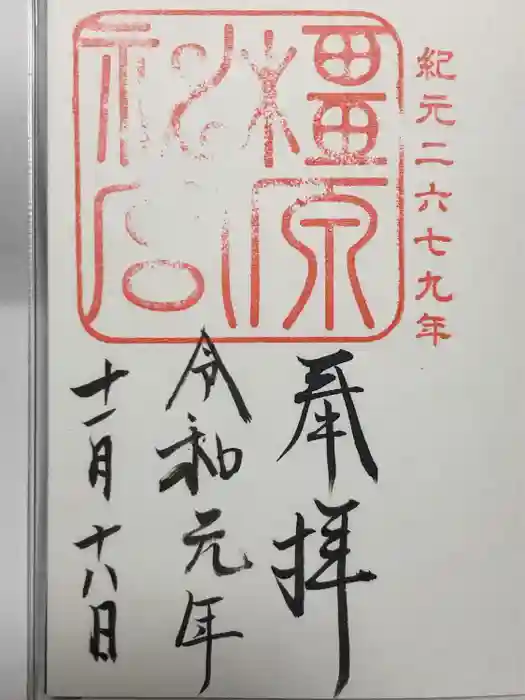 紀元二六七九年
橿原神宮
奉拝
令和元年
十一月十八日